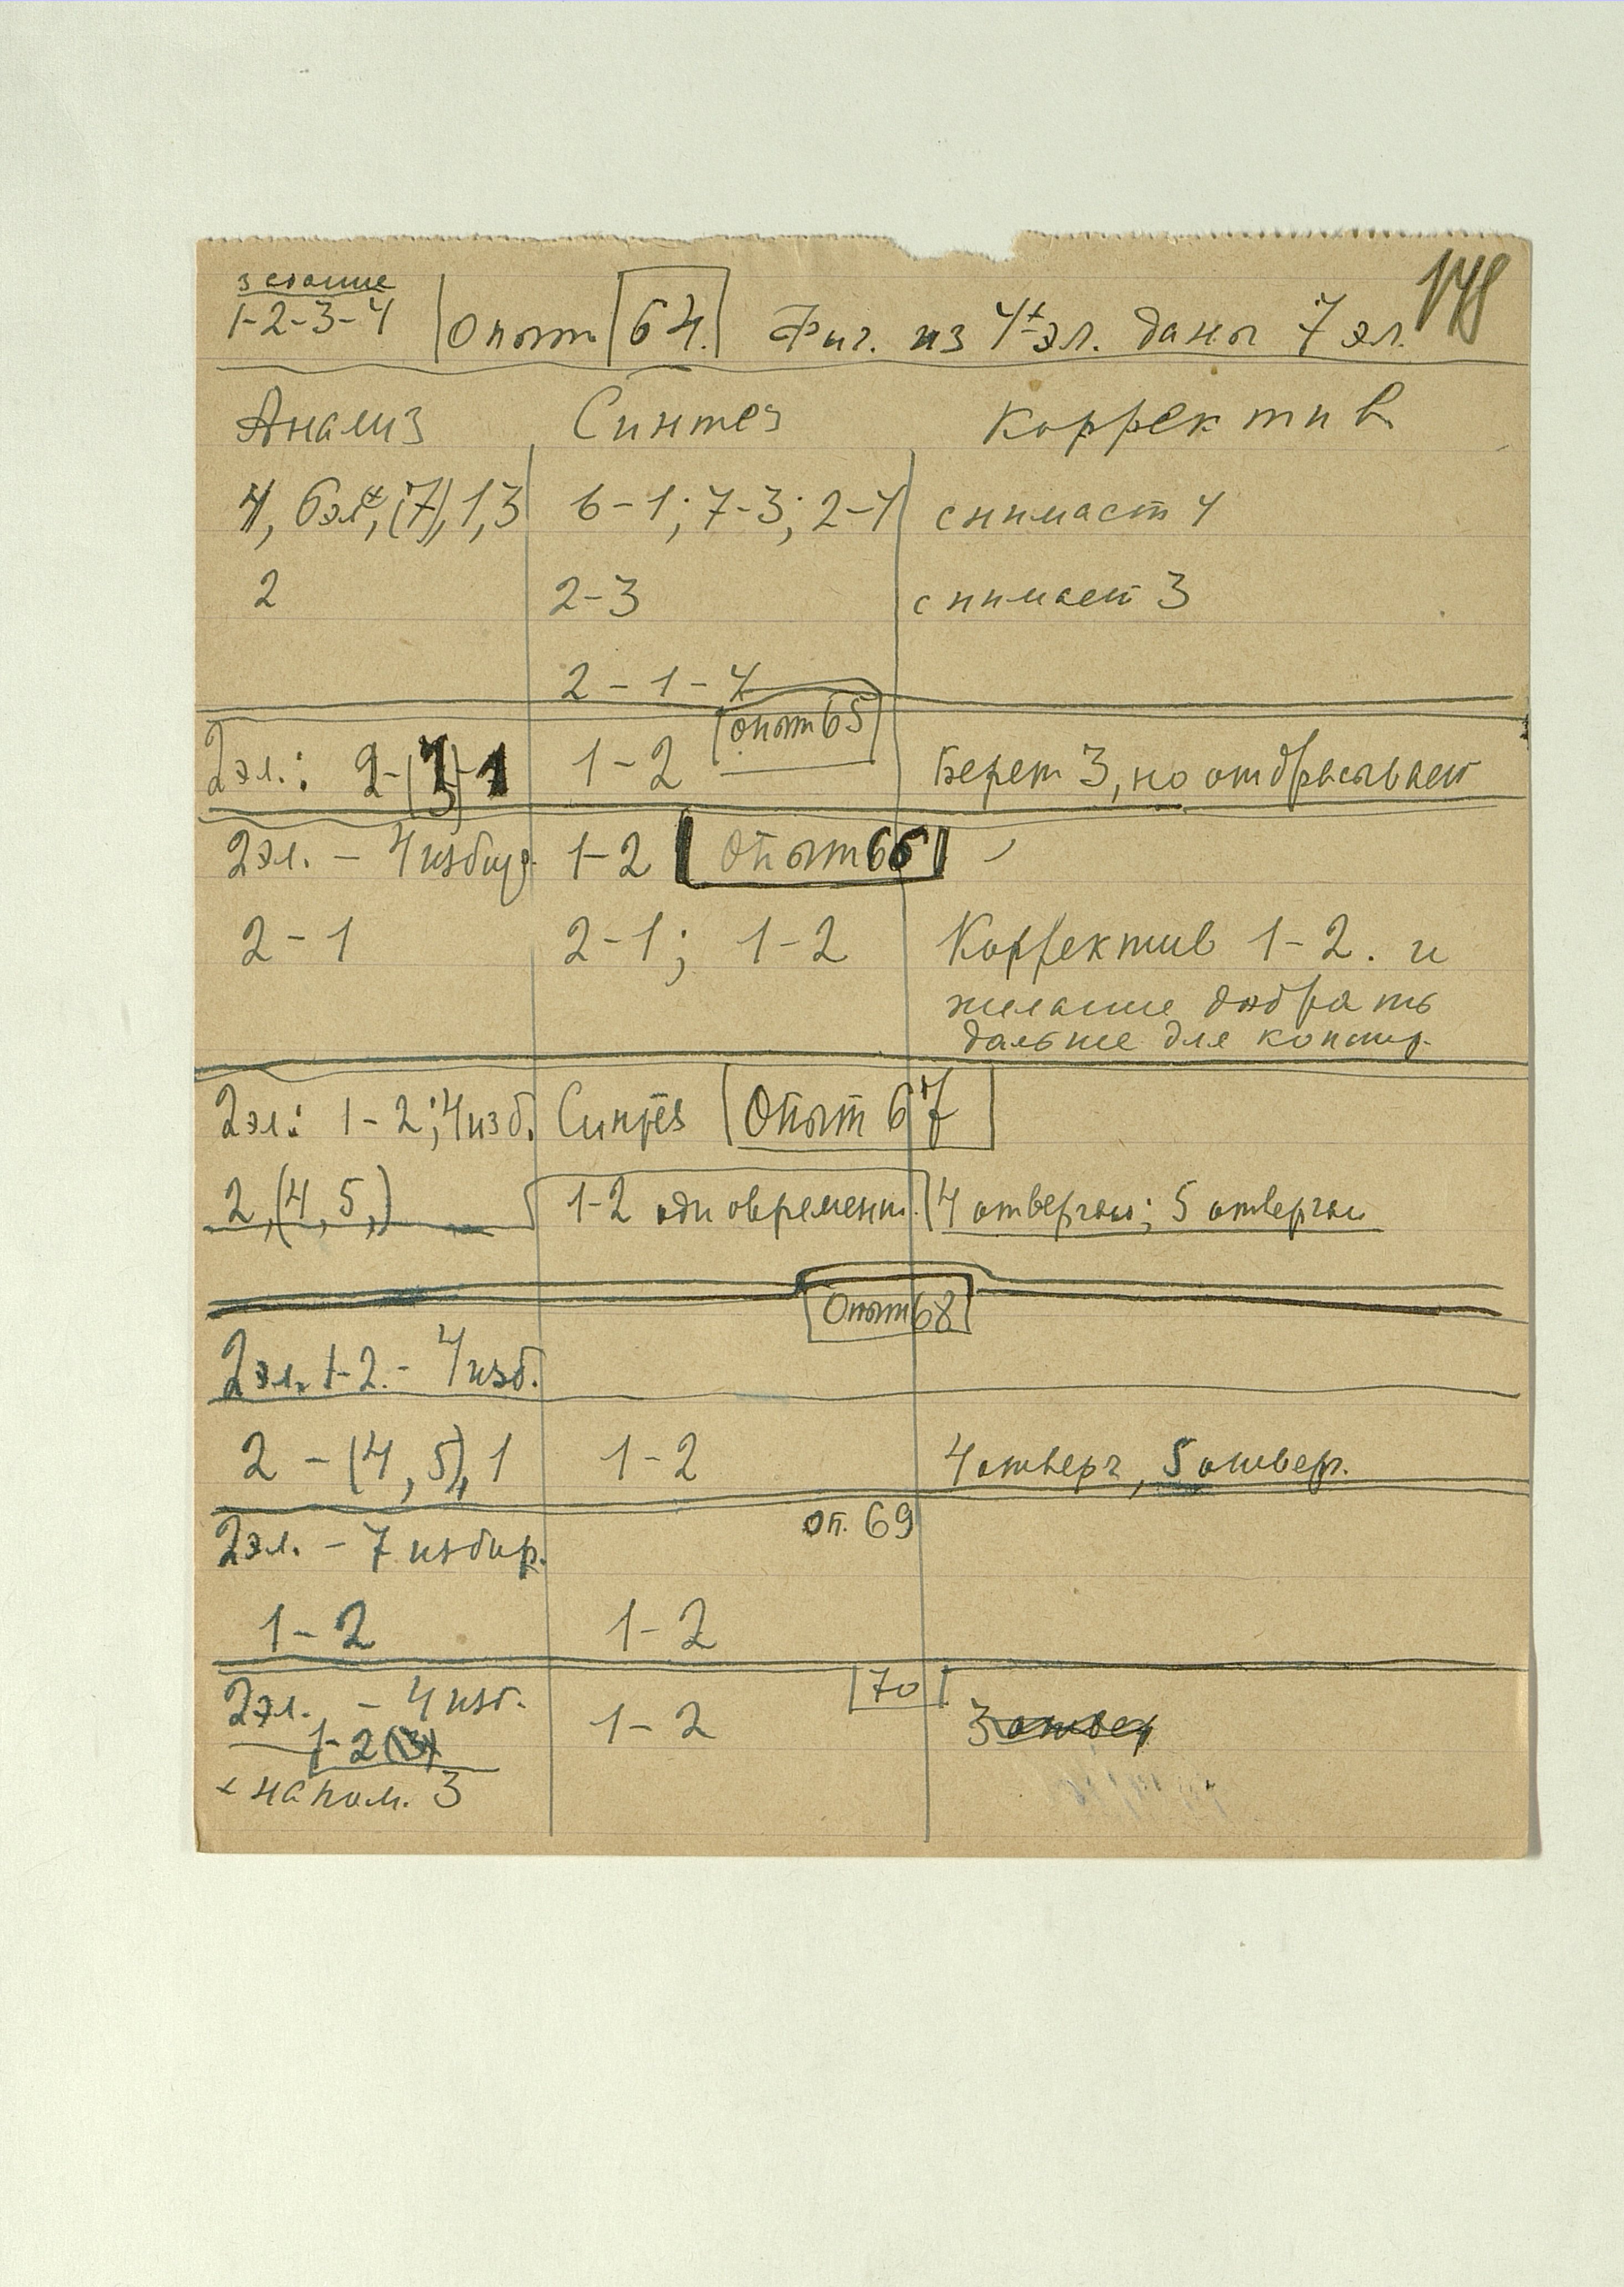 178
задание
1-2-3-4 Опыт 64. Фиг. из 4х эл. даны 7 эл.
Анализ Синтез Корректив
4, 6 эл, (7), 1, 3 6-1; 7-3; 2-4 снимает 4
2 2-3 снимает 3
2-1-4
Опыт 65
2 эл.: 2-(3)-1 1-2 Берет 3, но отбрасывает
2 эл. - 4 избир. 1-2 Опыт 66
2-1 2-1; 1-2 Корректив 1-2. и
желание добрать
дальше для констр.
2 эл: 1-2; 4 изб. Синтез Опыт 67
2, (4, 5,) 1-2 одновременн. 4 отвергаю; 5 отвергаю
Опыт 68
2 эл. 1-2. - 4 изб.
2 - (4, 5), 1 1-2 4 отверг, 5 отверг.
оп. 69
2 эл. - 7 избир.
1-2 1-2
70
2 эл. - 4 изб.
1-2 (3) 1-2 3 отвер
х напом. 3